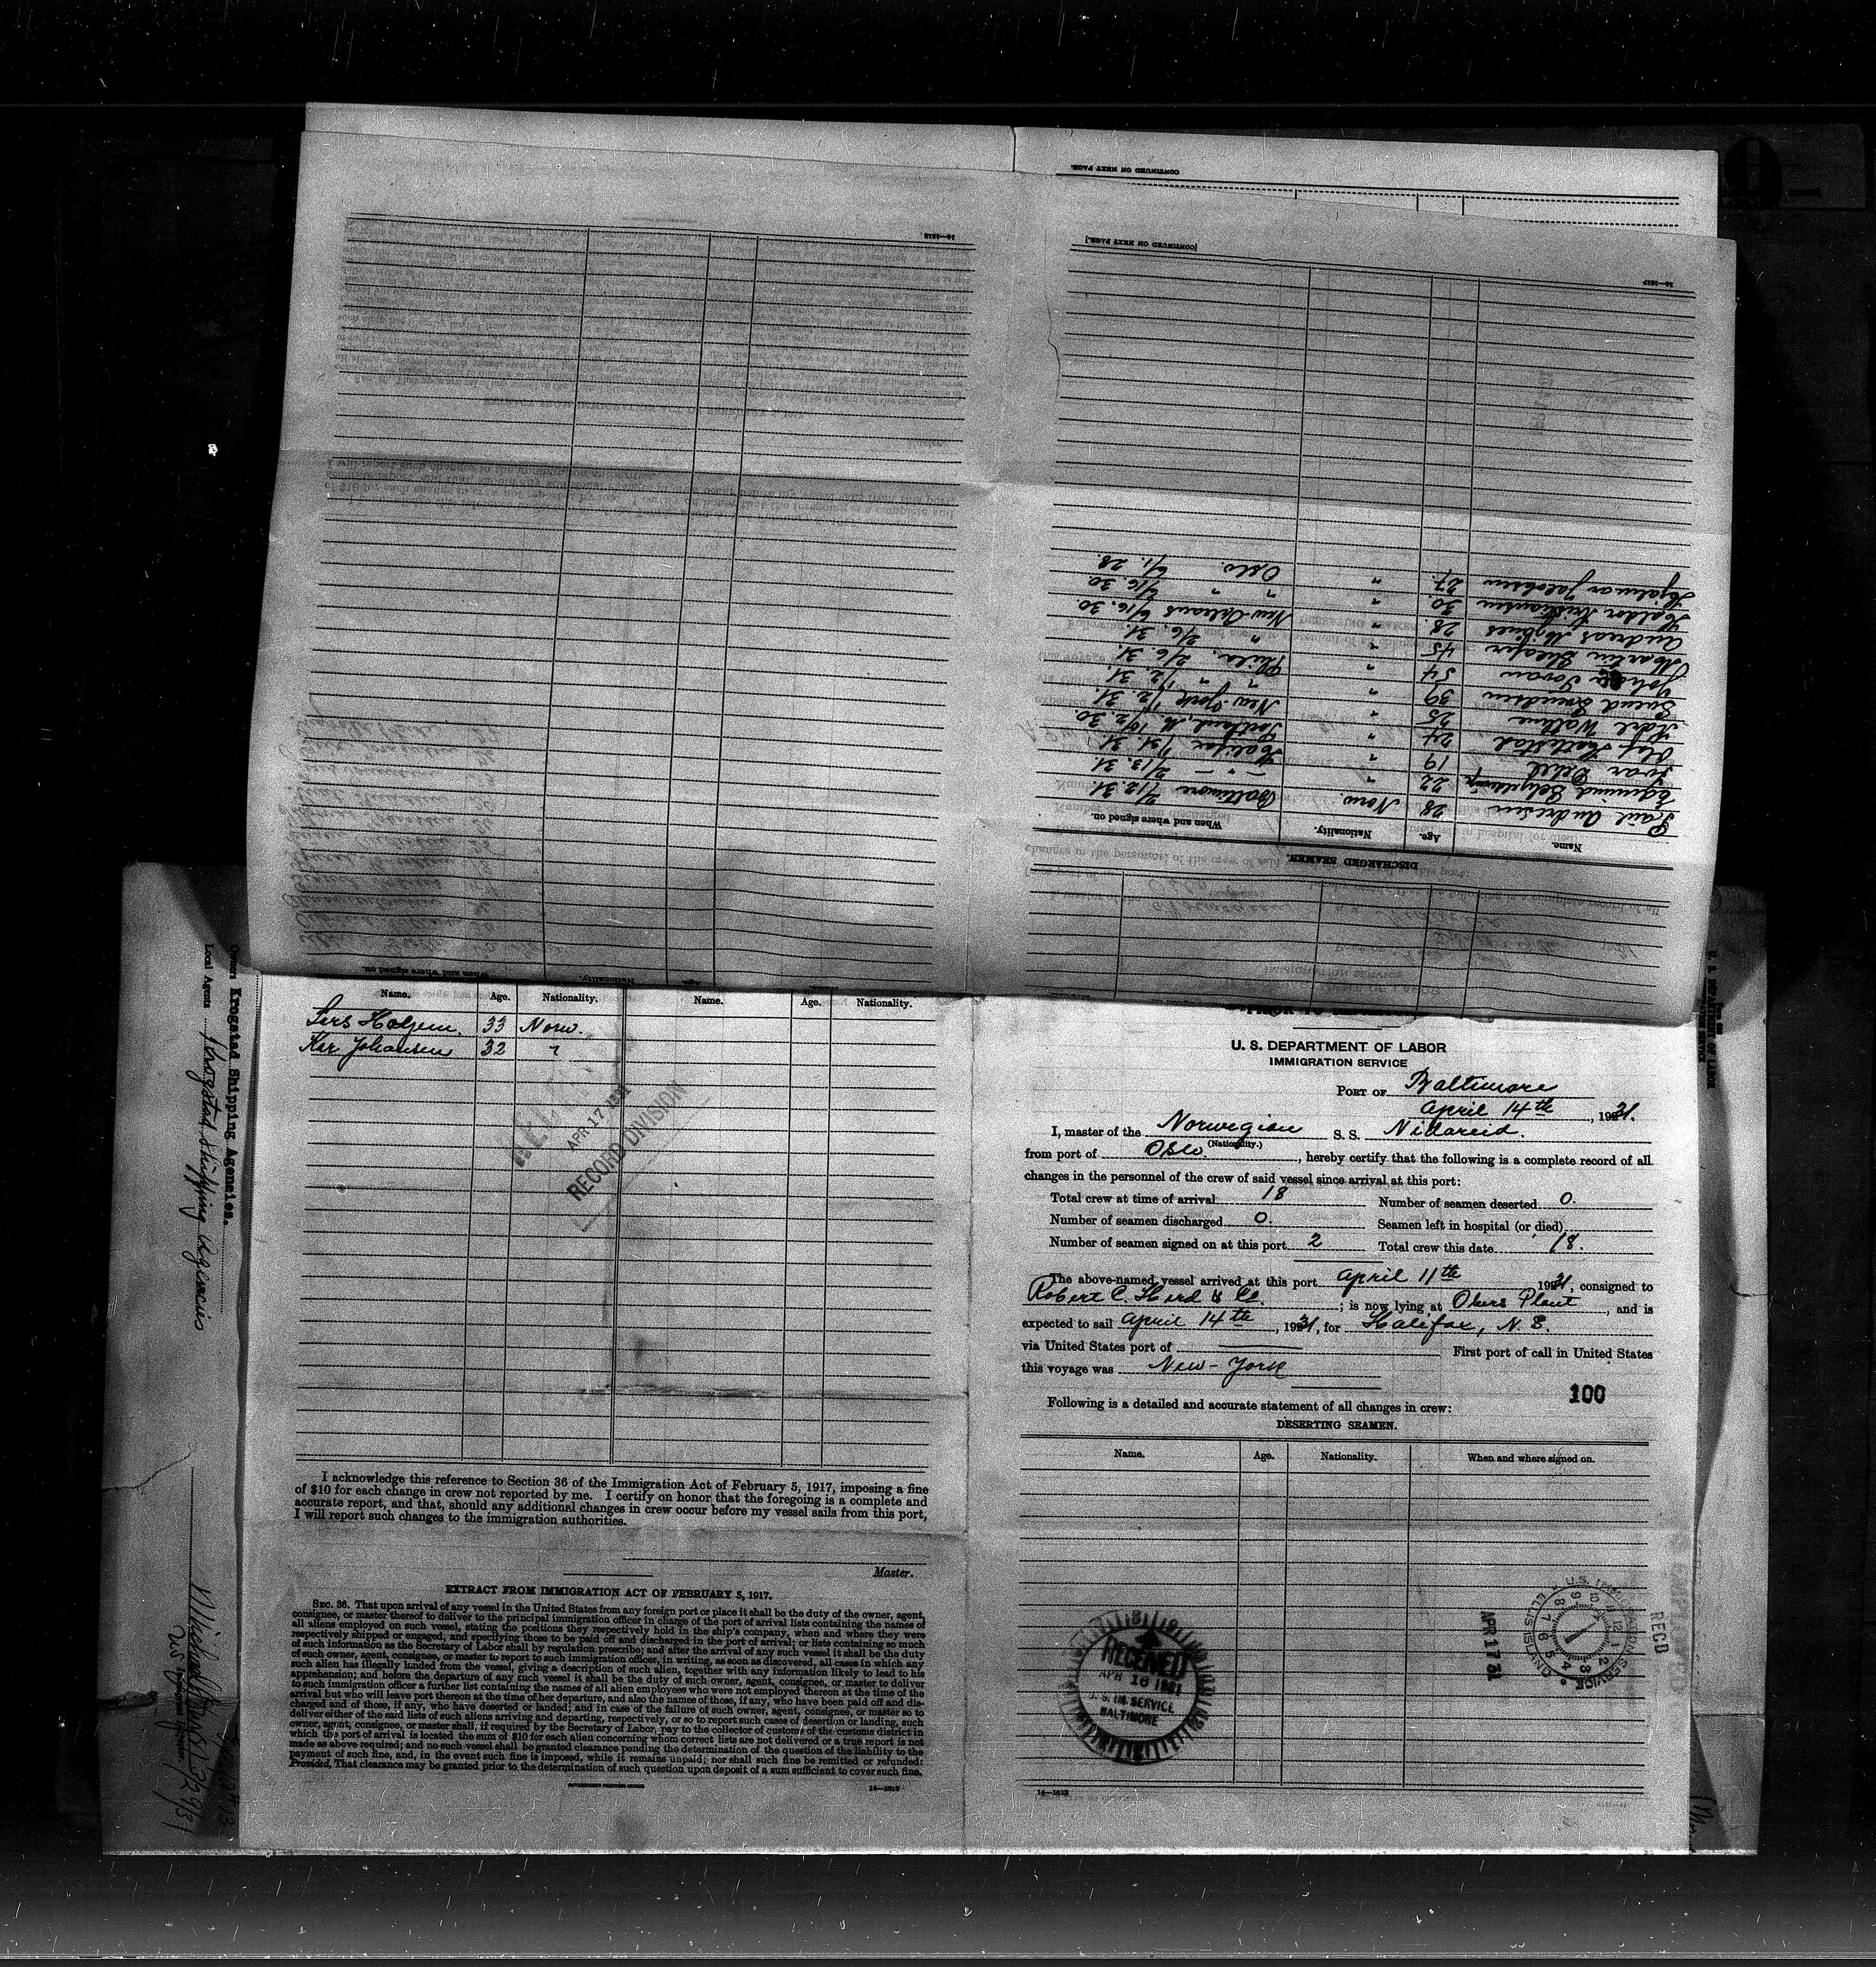 CONTINUED ON NEXT PAGE.
16—1613
[CONTINUED ON NEXT PAGE.]
16—1613
DISCHARGED SEAMEN.
Name. Age. Nationality. When and where signed on.
Paul Andresen 28 Norw. Baltimore 2/12. 31.
Edmund 22 " — " — 2/13. 31.
Ivar 19 " Halifax 1/31. 31.
Olaf 24 " Portland, M. 10/2. 30.
Karl Walline 25 " New-York 1/2. 31.
Svend Knudsen 39 " " " 1/2. 31.
Johan 54 " Phila. 2/6. 31.
Martin 45 " " 2/6. 31.
Andreas 28 " New-Orleans 6/16. 30.
Haldor Kristiansen 30 " " " 6/16. 30.
Hjalmar Jakobsen 27 " Oslo. 6/1. 28.
When and where signed on. Nationality. Age.
Name. Age. Nationality. Name. Age. Nationality.
Lars 33 Norw.
Kar Johansen 32 "
APR 17 1931
RECORD DIVISION
I acknowledge this reference to Section 36 of the Immigration Act of February 5, 1917, imposing a fine
of $10 for each change in crew not reported by me. I certify on honor that the foregoing is a complete and
accurate report, and that, should any additional changes in crew occur before my vessel sails from this port,
I will report such changes to the immigration authorities.
Master.
EXTRACT FROM IMMIGRATION ACT OF FEBRUARY 5, 1917.
SEC. 36. That upon arrival of any vessel in the United States from any foreign port or place it shall be the duty of the owner, agent,
consignee, or master thereof to deliver to the principal immigration officer in charge of the port of arrival lists containing the names of
all aliens employed on such vessel, stating the positions they respectively hold in the ship's company, when and where they were
respectively shipped or engaged, and specifying those to be paid off and discharged in the port of arrival; or lists containing so much
of such information as the Secretary of Labor shall by regulation prescribe; and after the arrival of any such vessel it shall be the duty
of such owner, agent, consignee, or master to report to such immigration officer, in writing, as soon as discovered, all cases in which any
such alien has illegally landed from the vessel, giving a description of such alien, together with any information likely to lead to his
apprehension; and before the departure of any such vessel it shall be the duty of such owner, agent, consignee, or master to deliver
to such immigration officer a further list containing the names of all alien employees who were not employed thereon at the time of the
arrival but who will leave port thereon at the time of her departure, and also the names of those, if any, who have been paid off and dis-
charged and of those, if any, who have deserted or landed; and in case of the failure of such owner, agent, consignee, or master so to
deliver either of the said lists of such aliens arriving and departing, respectively, or so to report such cases of desertion or landing, such
owner, agent, consignee, or master shall, if required by the Secretary of Labor, pay to the collector of customs of the customs district in
which the port of arrival is located the sum of $10 for each alien concerning whom correct lists are not delivered or a true report is not
made as above required; and no such vessel shall be granted clearance pending the determination of the question of the liability to the
payment of such fine, and, in the event such fine is imposed, while it remains unpaid; nor shall such fine be remitted or refunded:
Provided, That clearance may be granted prior to the determination of such question upon deposit of a sum sufficient to cover such fine.
GOVERNMENT PRINTING OFFICE
14—1613
U. S. DEPARTMENT OF LABOR
IMMIGRATION SERVICE
PORT OF Baltimore
April 14th, 1931.
I, master of the Norwegian S. S. Nidareid.
(Nationality.)
from port of Oslo., hereby certify that the following is a complete record of all
changes in the personnel of the crew of said vessel since arrival at this port:
Total crew at time of arrival 18 Number of seamen deserted 0.
Number of seamen discharged 0. Seamen left in hospital (or died)
Number of seamen signed on at this port 2 Total crew this date 18.
The above-named vessel arrived at this port April 11th 1931, consigned to
Robert C. Herd & Co.; is now lying at Obers Plant, and is
expected to sail April 14th, 1931, for Halifax, N. S.
via United States port of First port of call in United States
this voyage was New-York
100
Following is a detailed and accurate statement of all changes in crew:
DESERTING SEAMEN.
Name. Age. Nationality. When and where signed on.
RECEIVED
APR 16 1931
U. S. IM. SERVICE
BALTIMORE
REC'D
APR 17 31
U.S. IMMIGRATION SERVICE
ELLIS ISLAND
14—1613
Owners Krogstad Shipping Agencies.
Local Agents Krogstad Shipping Agencies